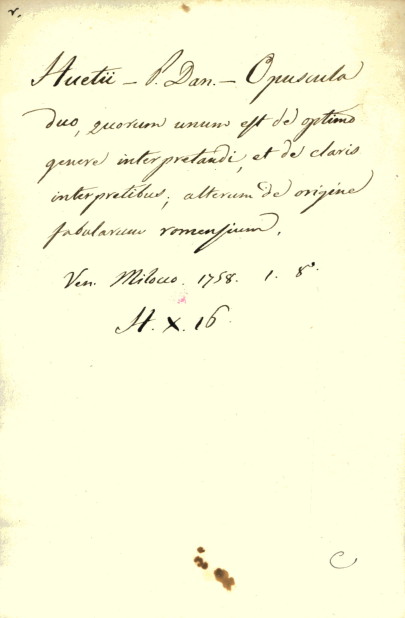 v.
Huetii – P. Dan. – Opuscula
duo, quorum unum est de optimo
genere interpretandi, et de claris
interpretibus; alterum de origine
fabularum romensium.
Ven. Milocco. 1758. 1. 8°.
H. X. 16.
C